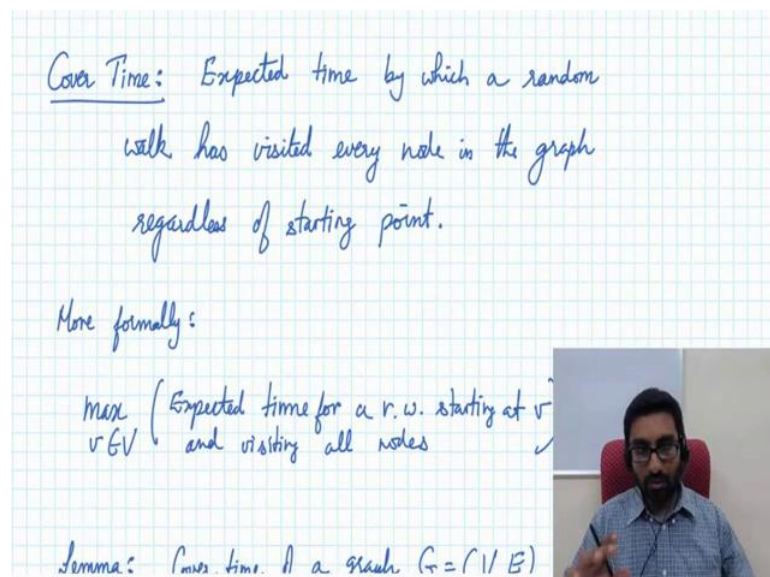 Cover Time: Expected time by which a random
walk has visited every node in the graph
regardless of starting point.
More formally:
max ( Expected time for a r.w. starting at v
v∈V and visiting all nodes
Lemma: Cover time of a graph G = (V, E)